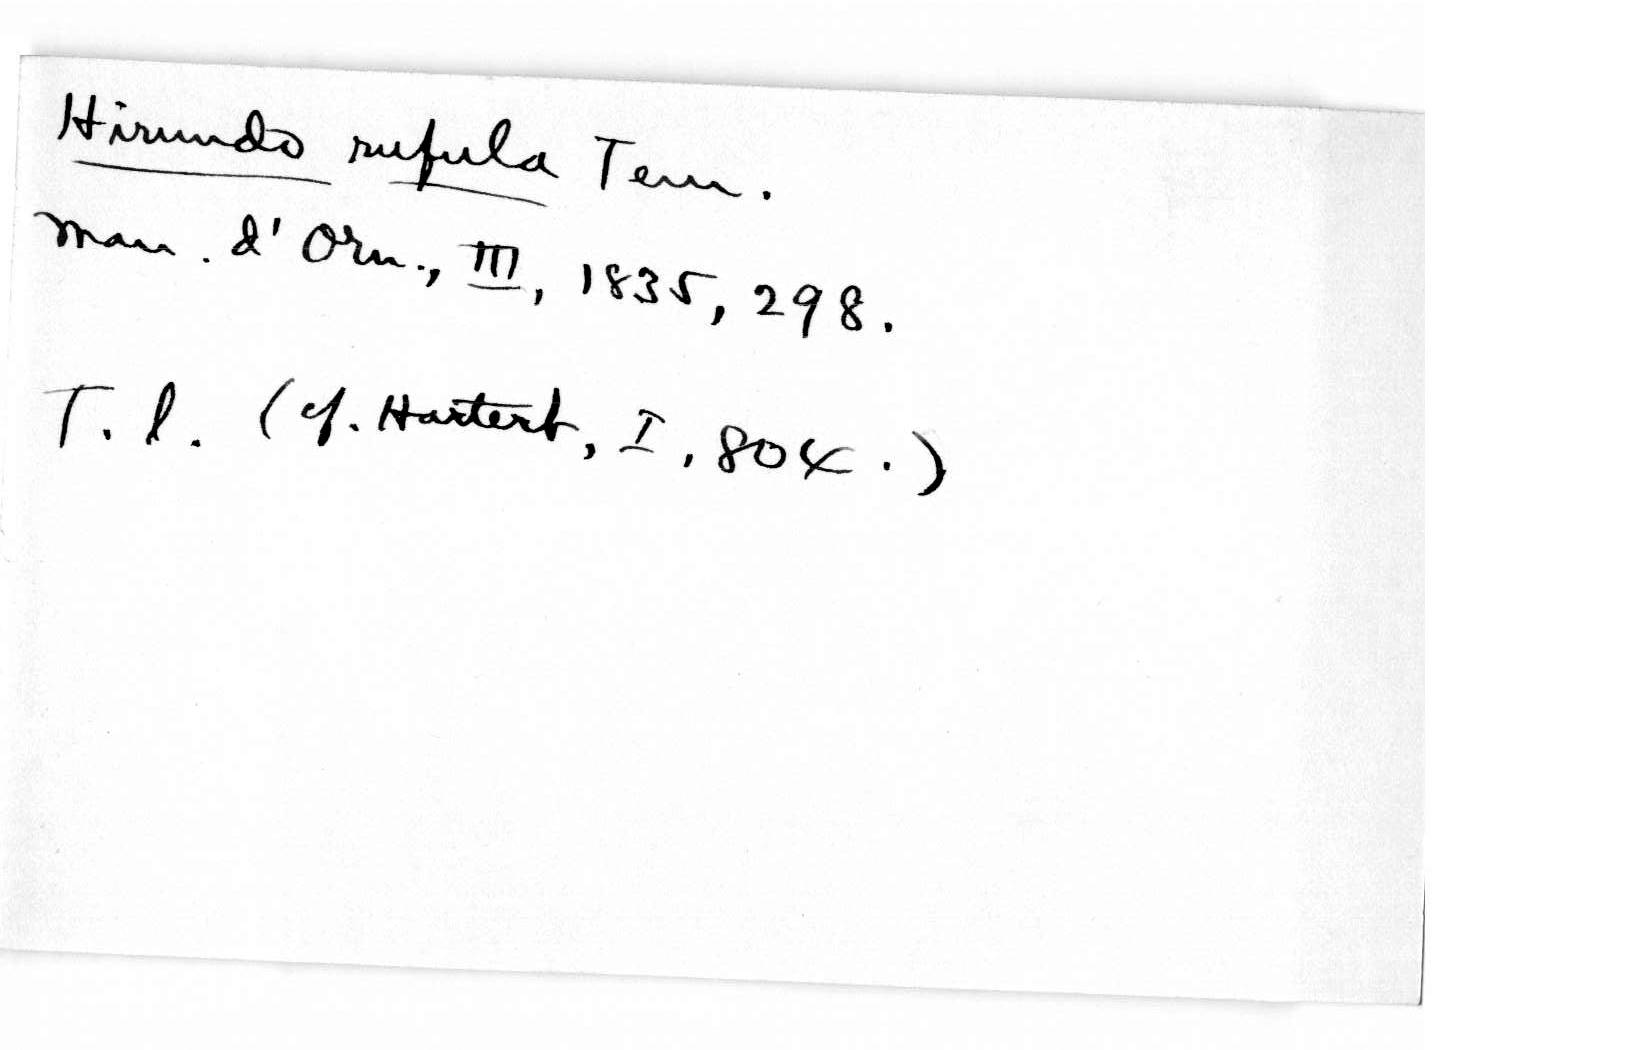 Hirundo rufula Tem.
Man. d'Orn., III, 1835, 298.
T. l. (cf. Hartert, I, 804.)